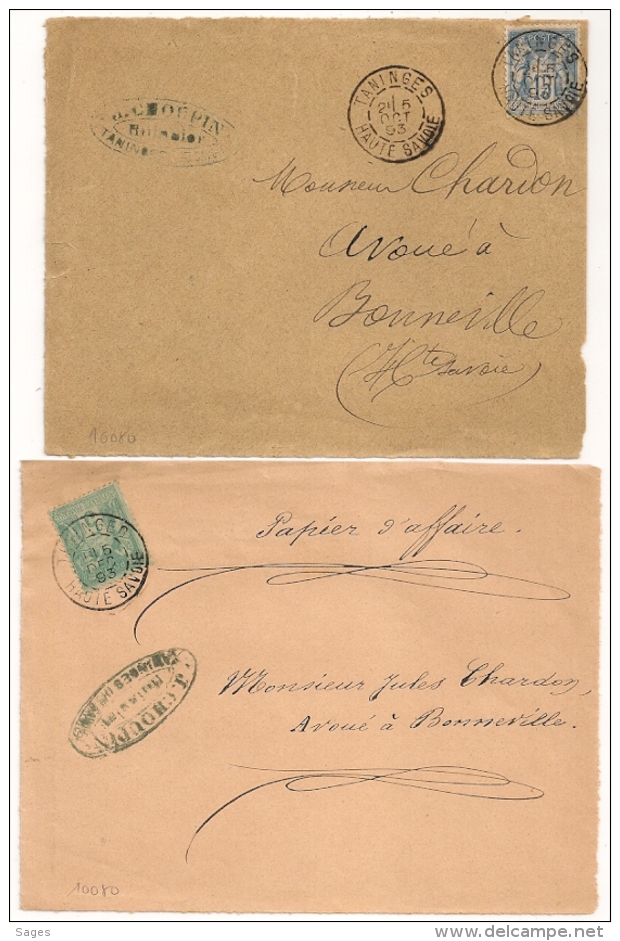 J. CHOUPIN
Huissier
TANINGES
TANINGES
5
OCT
93
HAUTE SAVOIE
TANINGES
HAUTE SAVOIE
15
Monsieur Chardon
Avoué à
Bonneville
(Hte Savoie)
10080
TANINGES
5
DEC
93
HAUTE SAVOIE
Papier d'affaire.
J. CHOUPIN
Huissier
TANINGES
Monsieur Jules Chardon,
Avoué à Bonneville.
10080
Sages
www.delcampe.net